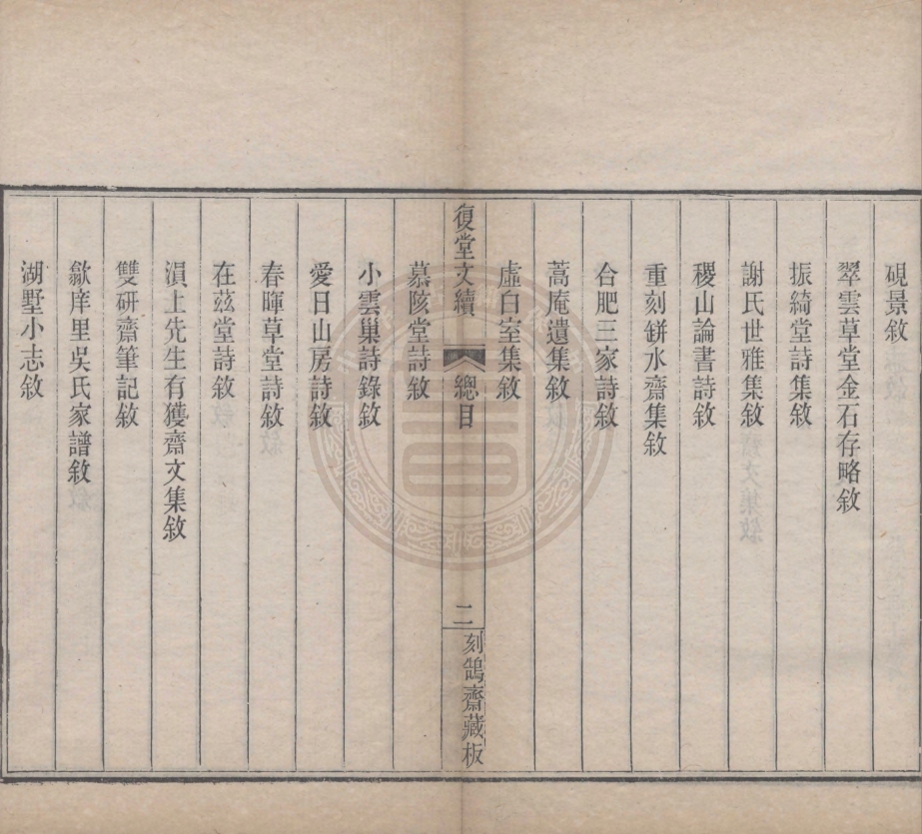 硯景敘
翠雲草堂金石存略敘
振綺堂詩集敘
謝氏世雅集敘
稷山論書詩敘
重刻缾水齋集敘
合肥三家詩敘
蒿庵遺集敘
虛白室集敘
復堂文續 總目 二 刻鵠齋藏板
慕陔堂詩敘
小雲巢詩錄敘
愛日山房詩敘
春暉草堂詩敘
在茲堂詩敘
溳上先生有獲齋文集敘
雙研齋筆記敘
歙庠里吳氏家譜敘
湖墅小志敘